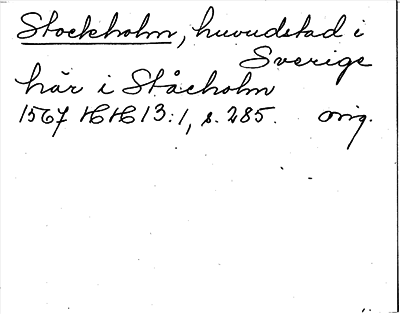 Stockholm, huvudstad i
Sverige
här i Ståcholm
1567 HH 13:1, s. 285. orig.